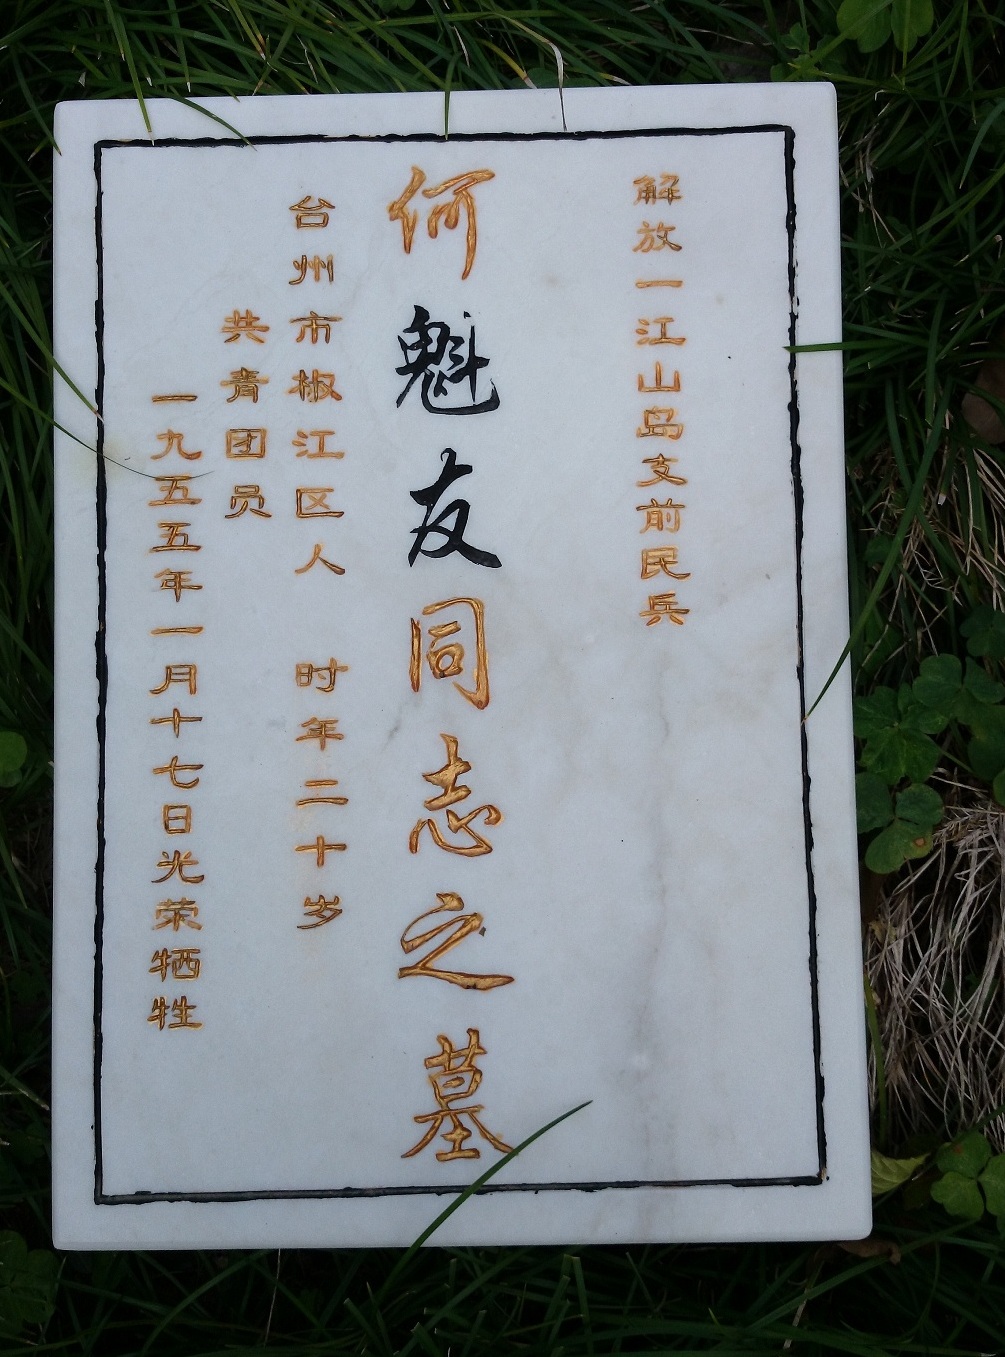 解放一江山岛支前民兵
何魁友同志之墓
台州市椒江区人 时年二十岁
共青团员
一九五五年一月十七日光荣牺牲